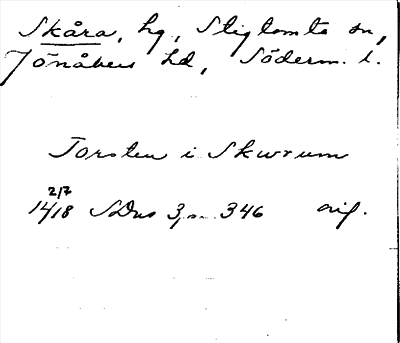 Skåra, hg, Stigtomta sn,
Jönåkers hd, Söderm. l.
Torsten i Skwrum
27/7
1418 SDns 3, s. 346 orig.